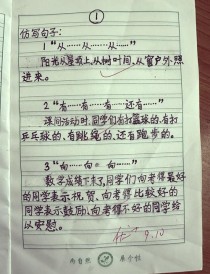 ①
仿写句子:
1 “从……从……从……”
阳光从屋顶上,从树叶间,从窗户外照
进来。
2 “有……有……有……还有……”
课间活动时,同学们有打篮球的,有打
乒乓球的,有跳绳的,还有跑步的。
3 “向……向……向……”
数学成绩下来了,同学们向老得最好
的同学表示祝贺,向老得比较好的
同学表示鼓励,向老得不好的同学给
以安慰。
9.10